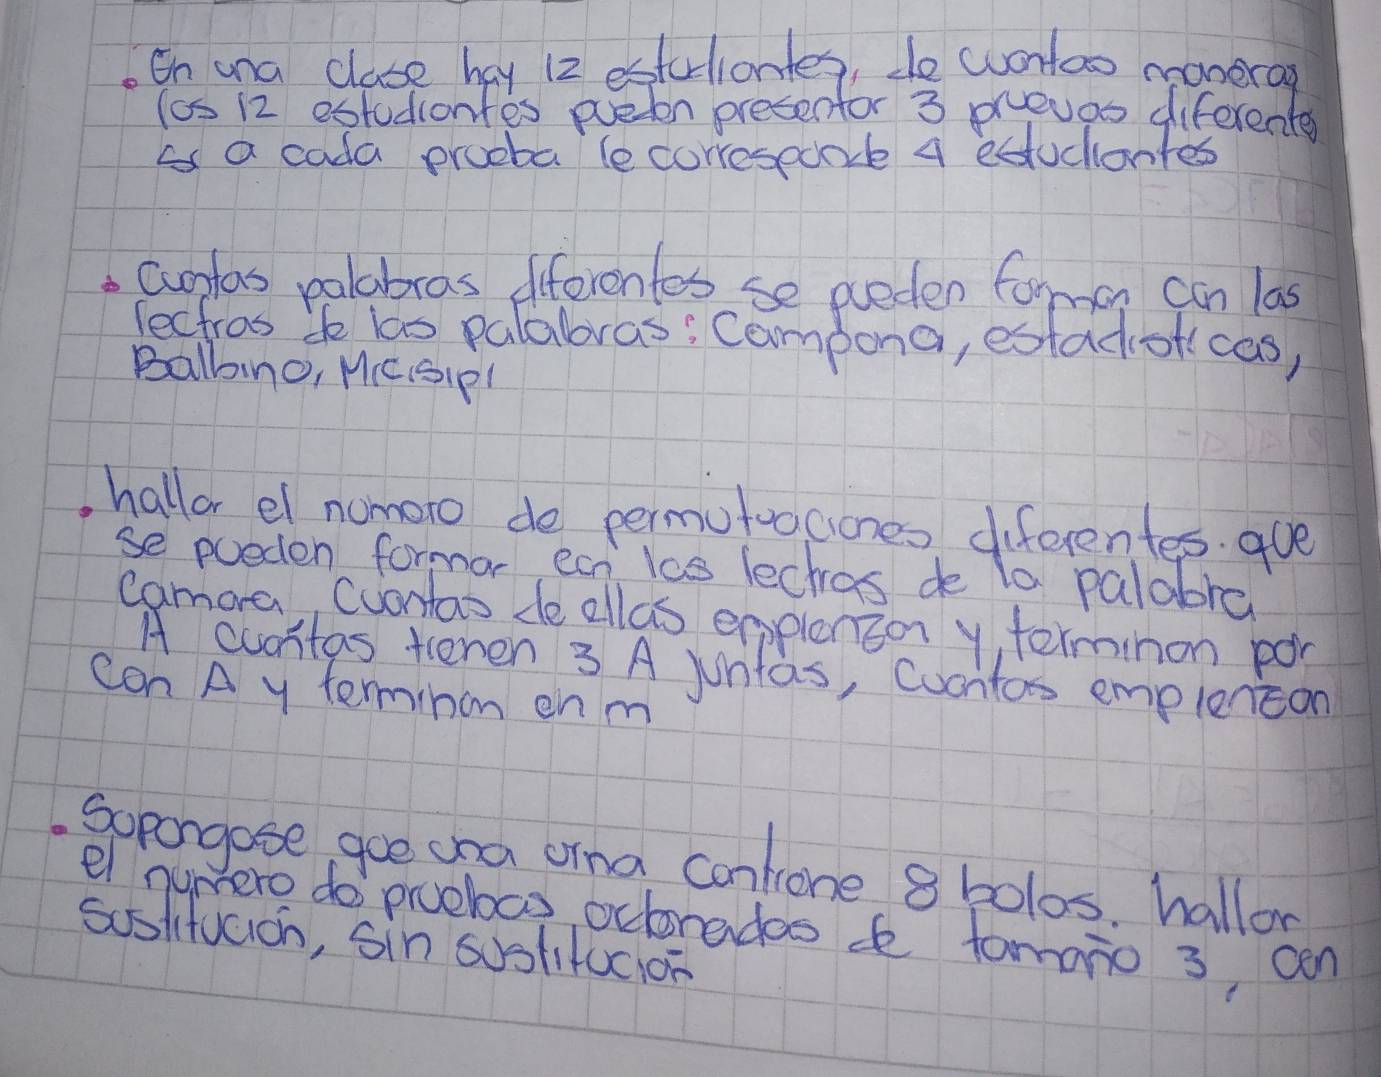 En una clase hay 12 estudiantes, de cuantas maneras
los 12 estudiantes pueden presentar 3 pruevas diferentes
si a cada prueba le corresponde 4 estudiantes
Cuantas palabras diferentes se pueden forman con las
lectras de las palabras: Campana, estadisticas,
Balbino, Micisipi
hallar el numero de permutuaciones diferentes. que
se pueden formar con las lectras de la palabra
Camara, Cuantas de ellas empienzan y, terminan por
A cuantas tienen 3 A juntas, Cuantas empienzan
Con A y terminan en m
Supongase que una urna contiene 8 bolas. hallar
el numero de pruebas ordenadas de tamaño 3, con
sustitución, sin sustitución